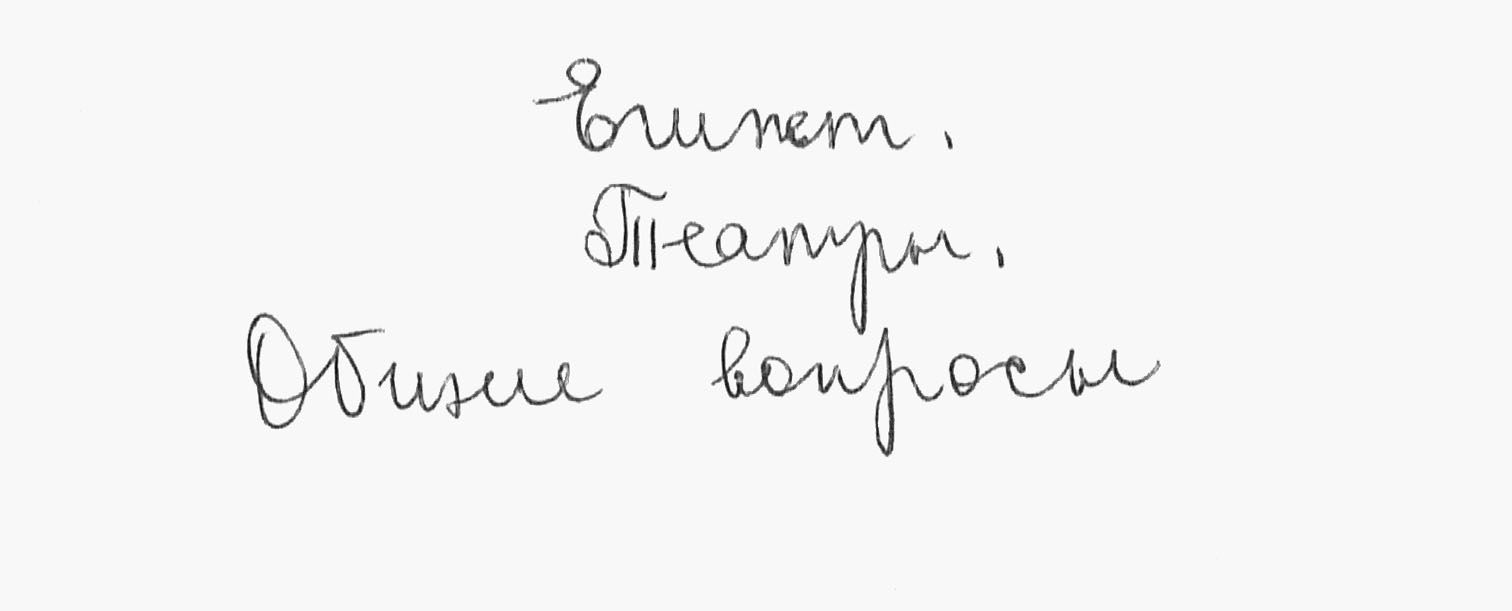 Египет.
Театры.
Общие вопросы